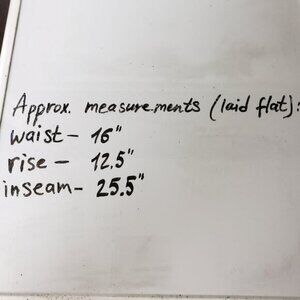 Approx. measurements (laid flat):
waist - 16"
rise - 12.5"
inseam - 25.5"